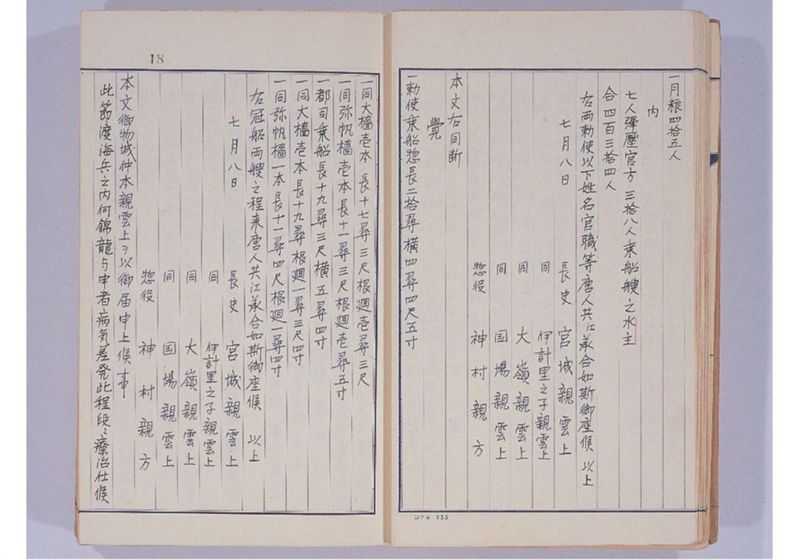 一月粮四拾五人
内
七人弾壓官方 三拾八人乗船艘之水主
合四百三拾四人
右両勅使以下姓名官職等唐人共江承合如斯御座候 以上
七月八日
長史 宮城親雲上
同 伊計里之子親雲上
同 大嶺親雲上
同 国場親雲上
惣役 神村親方
本文右同断
覺
一勅使乗船惣長二拾尋横四尋四尺五寸
一同大檣壱本長十七尋三尺根廻壱尋三尺
一同弥帆檣壱本長十一尋三尺根廻壱尋五寸
一都司乗船長十九尋三尺横五尋四寸
一同大檣壱本長十九尋根廻一尋三尺四寸
一同弥帆檣一本長十一尋四尺根廻一尋四寸
右冠船両艘之程来唐人共江承合如斯御座候 以上
七月八日
長史 宮城親雲上
同 伊計里之子親雲上
同 大嶺親雲上
同 国場親雲上
惣役 神村親方
本文御物城仲本親雲上ヲ以御届申上候事
此節渡海兵之内何錦龍与申者病気差発此程段々療治仕候
18